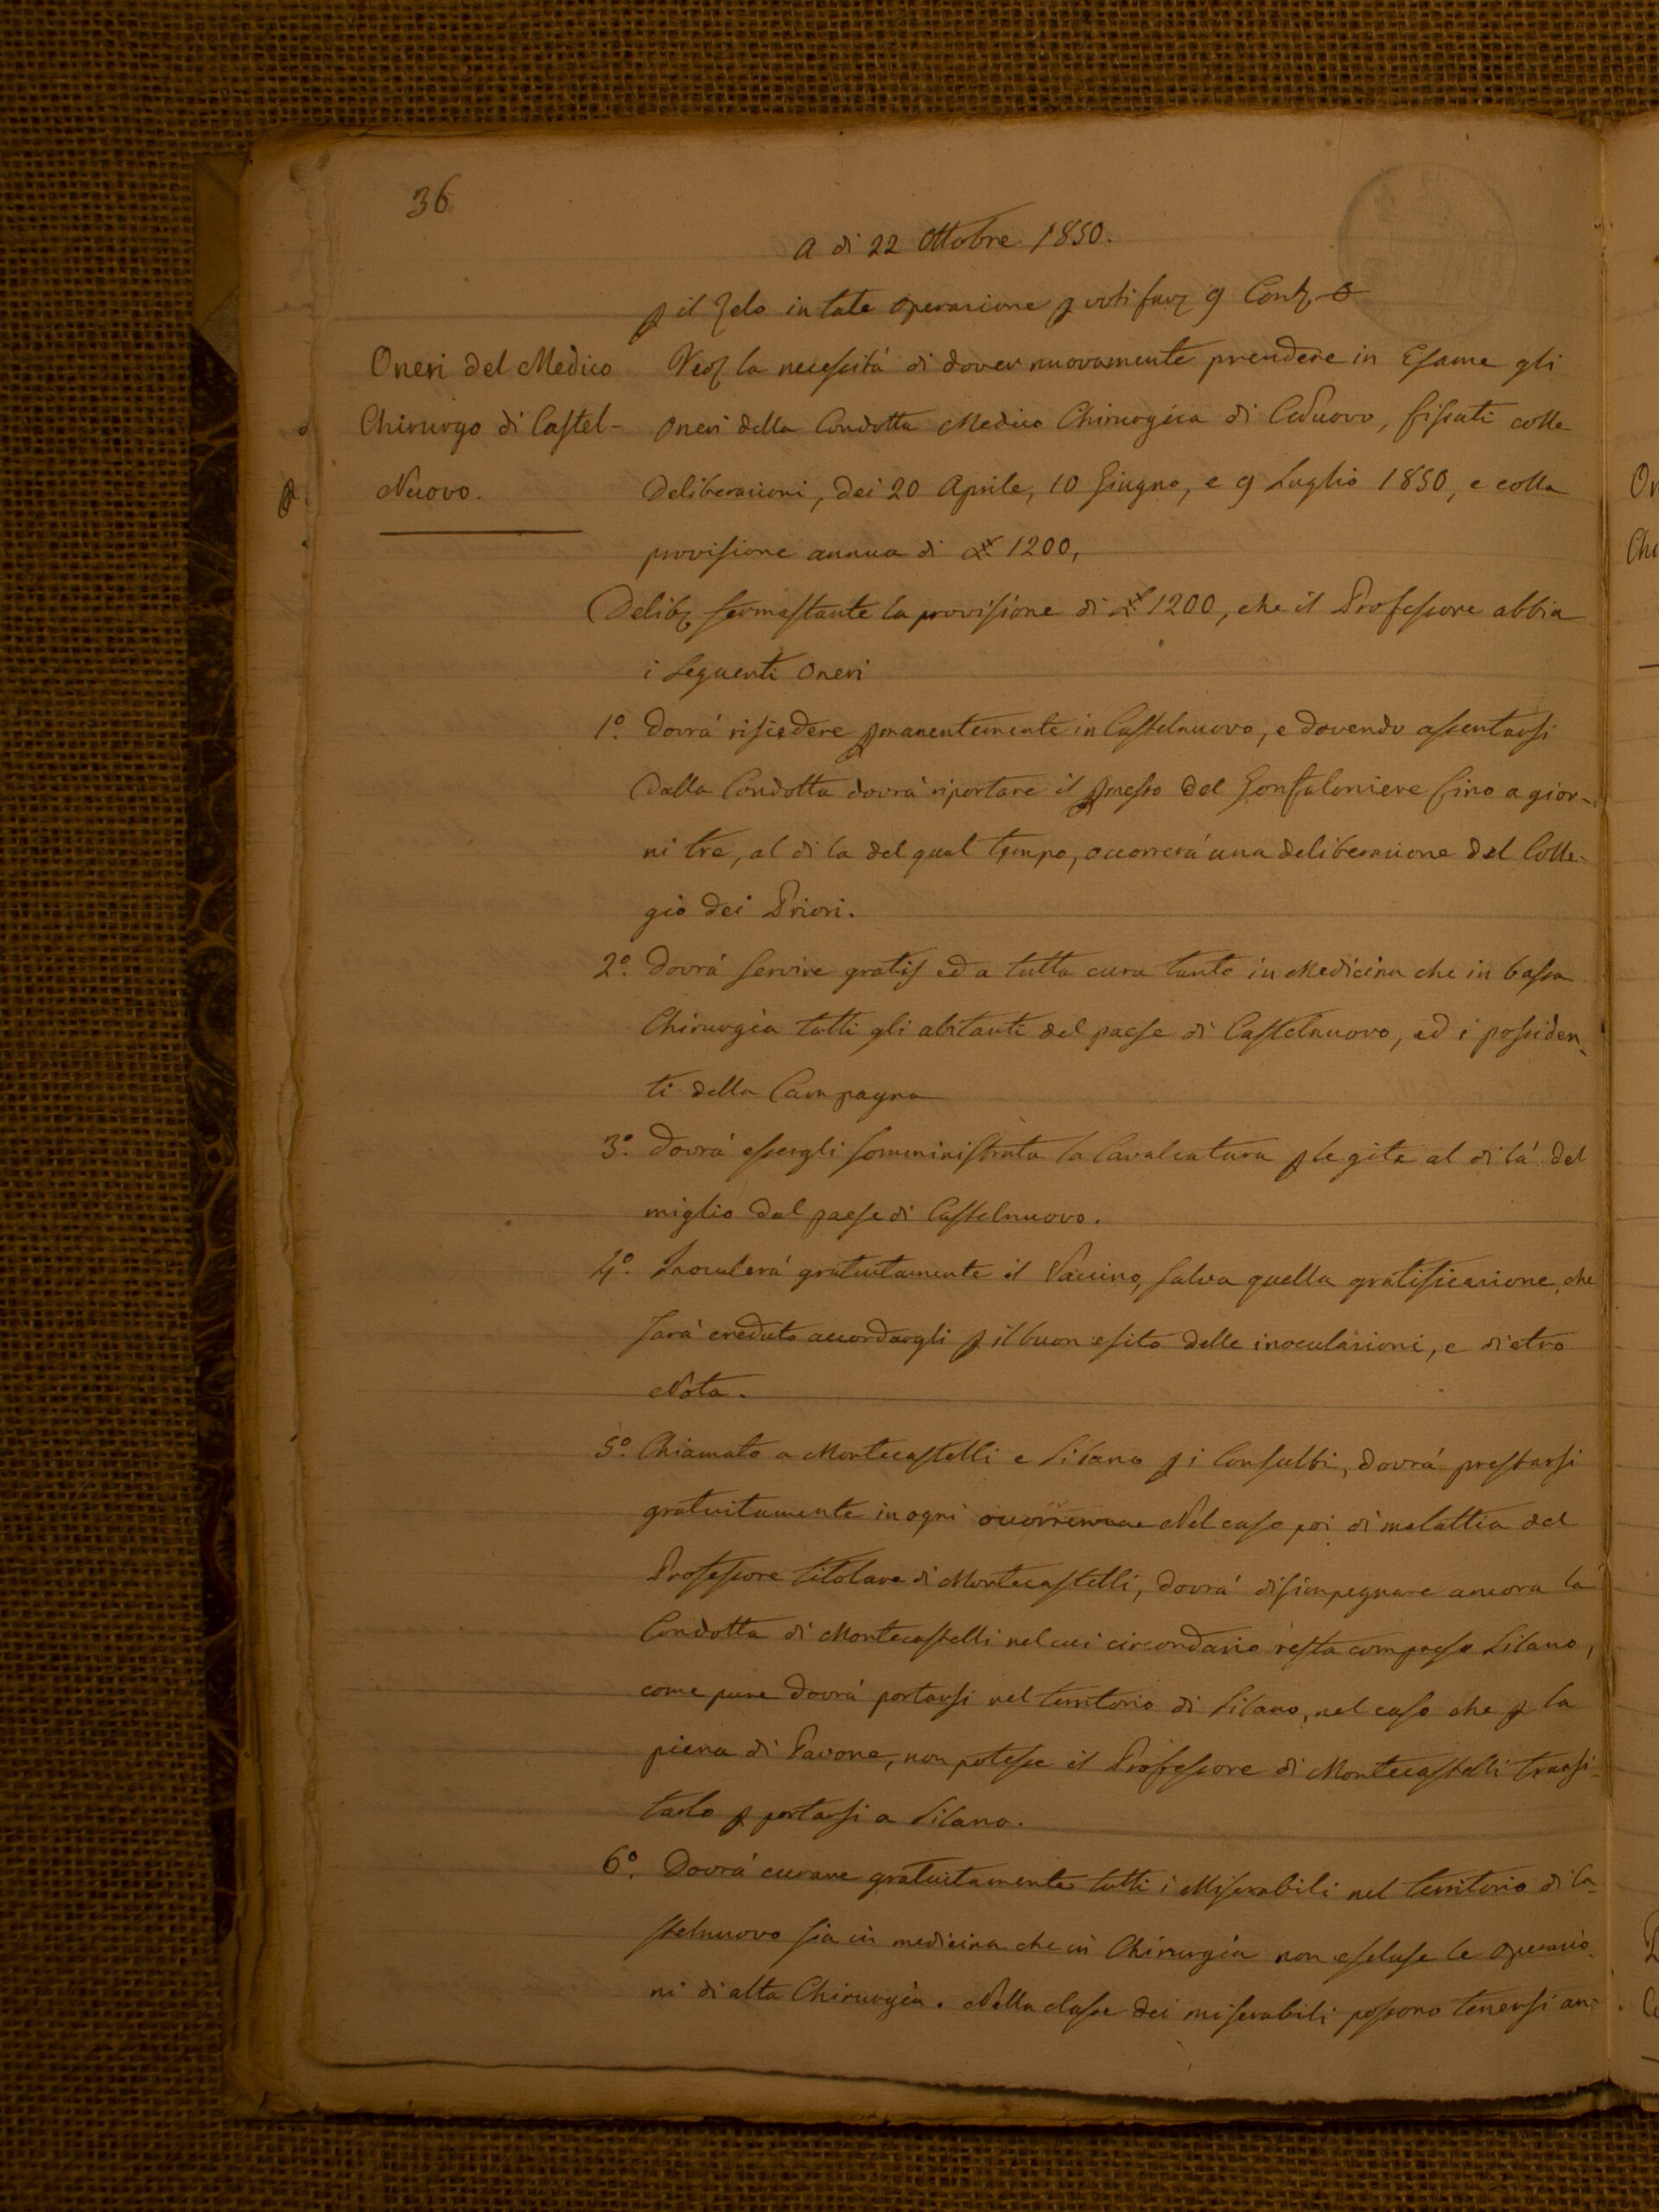 36
A di 22 Ottobre 1850.
p il zelo in tale operazione p voti favz 9 Contz 0
Oneri del Medico
Chirurgo di Castel-
Nuovo.
Vedz la necessità di dover nuovamente prendere in Esame gli
oneri della Condotta Medico Chirurgica di CNuovo, fissati colle
Deliberazioni, dei 20 Aprile, 10 Giugno, e 9 Luglio 1850, e colla
provisione annua di £ 1200,
Delibz fermastante la provisione di £ 1200, che il Professore abbia
i seguenti oneri
1° Dovrà risiedere pmanentemente in Castelnuovo, e dovendo assentarsi
dalla Condotta dovrà riportare il pmesso del Gonfaloniere fino a gior-
ni tre, al di la del qual tempo, occorrerà una deliberazione del Colle-
gio dei Priori.
2° Dovrà servire gratis ed a tutta cura tanto in Medicina che in bassa
Chirurgia tutti gli abitanti del paese di Castelnuovo, ed i possiden-
ti della Campagna
3° Dovrà essergli somministrata la Cavalcatura p le gite al di là del
miglio dal paese di Castelnuovo.
4° Inoculerà gratuitamente il Vaccino, salva quella gratificazione che
sarà creduto accordargli p il buon esito delle inoculazioni, e dietro
Nota.
5° Chiamato a Montecastelli e Silano p i Consulti, dovrà prestarsi
gratuitamente in ogni occorrenza Nel caso poi di malattia del
Professore titolare di Montecastelli, dovrà disimpegnare ancora la
Condotta di Montecastelli nel cui circondario resta compreso Silano,
come pure dovrà portarsi nel territorio di Silano, nel caso che p la
piena di Pavone, non potesse il Professore di Montecastelli transi-
tarlo p portarsi a Silano.
6° Dovrà curare gratuitamente tutti i Miserabili nel territorio di Ca-
stelnuovo sia in medicina che in Chirurgia non escluse le operazio-
ni di alta Chirurgia. Nella classe dei miserabili possono tenersi an-